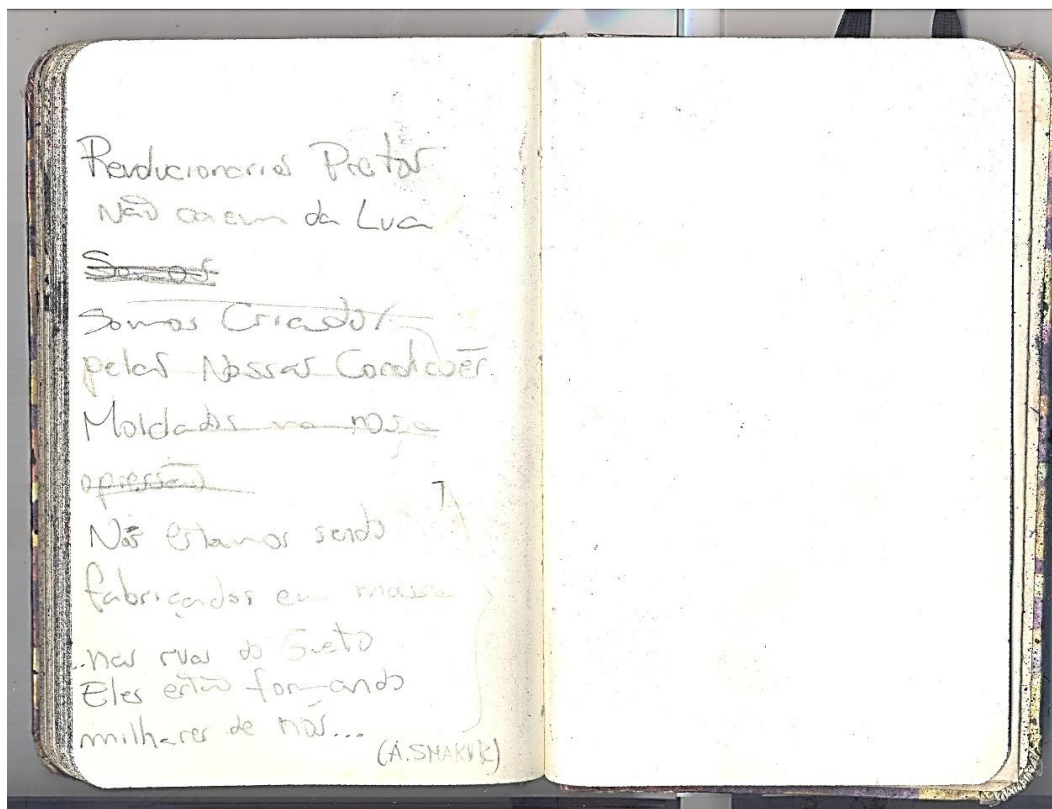 Revolucionarios Pretos
Não caem da Lua
Somos
Somos Criados
pelas Nossas Condições
Moldados na nossa
opressão
Nós estamos sendo
fabricados em massa
..nas ruas do Gueto
Eles estão formando
milhares de nós...